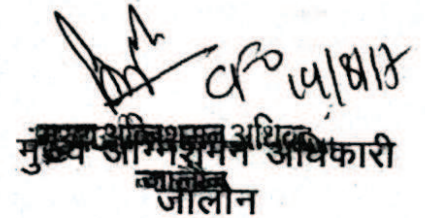 CFO 14/8/17
मुख्य अग्निशमन अधिकारी
जालौन